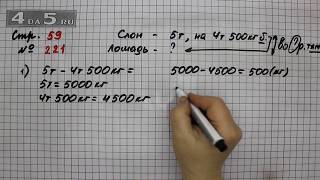 4DA5.RU
Стр. 59
№ 221
Слон - 5т, на 4т 500кг б.
Лошадь - ?
во ? р. т
1) 5т - 4т 500кг =
5т = 5000кг
4т 500кг = 4500кг
5000 - 4500 = 500(кг)